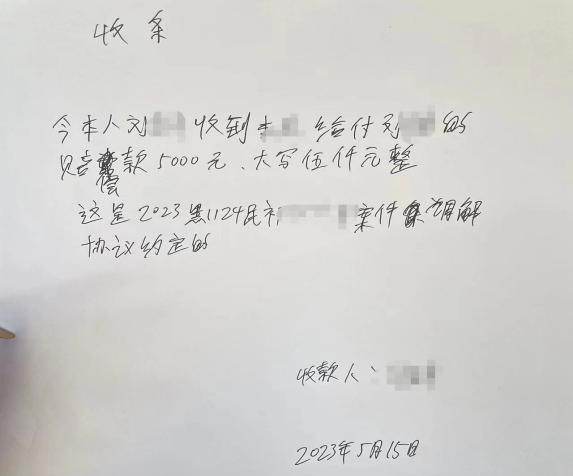 收条
今本人刘 收到 给付刘 的
赔偿款5000元、大写伍仟元整
这是2023黑1124民初 案件 调解
协议约定的
收款人:
2023年5月15日